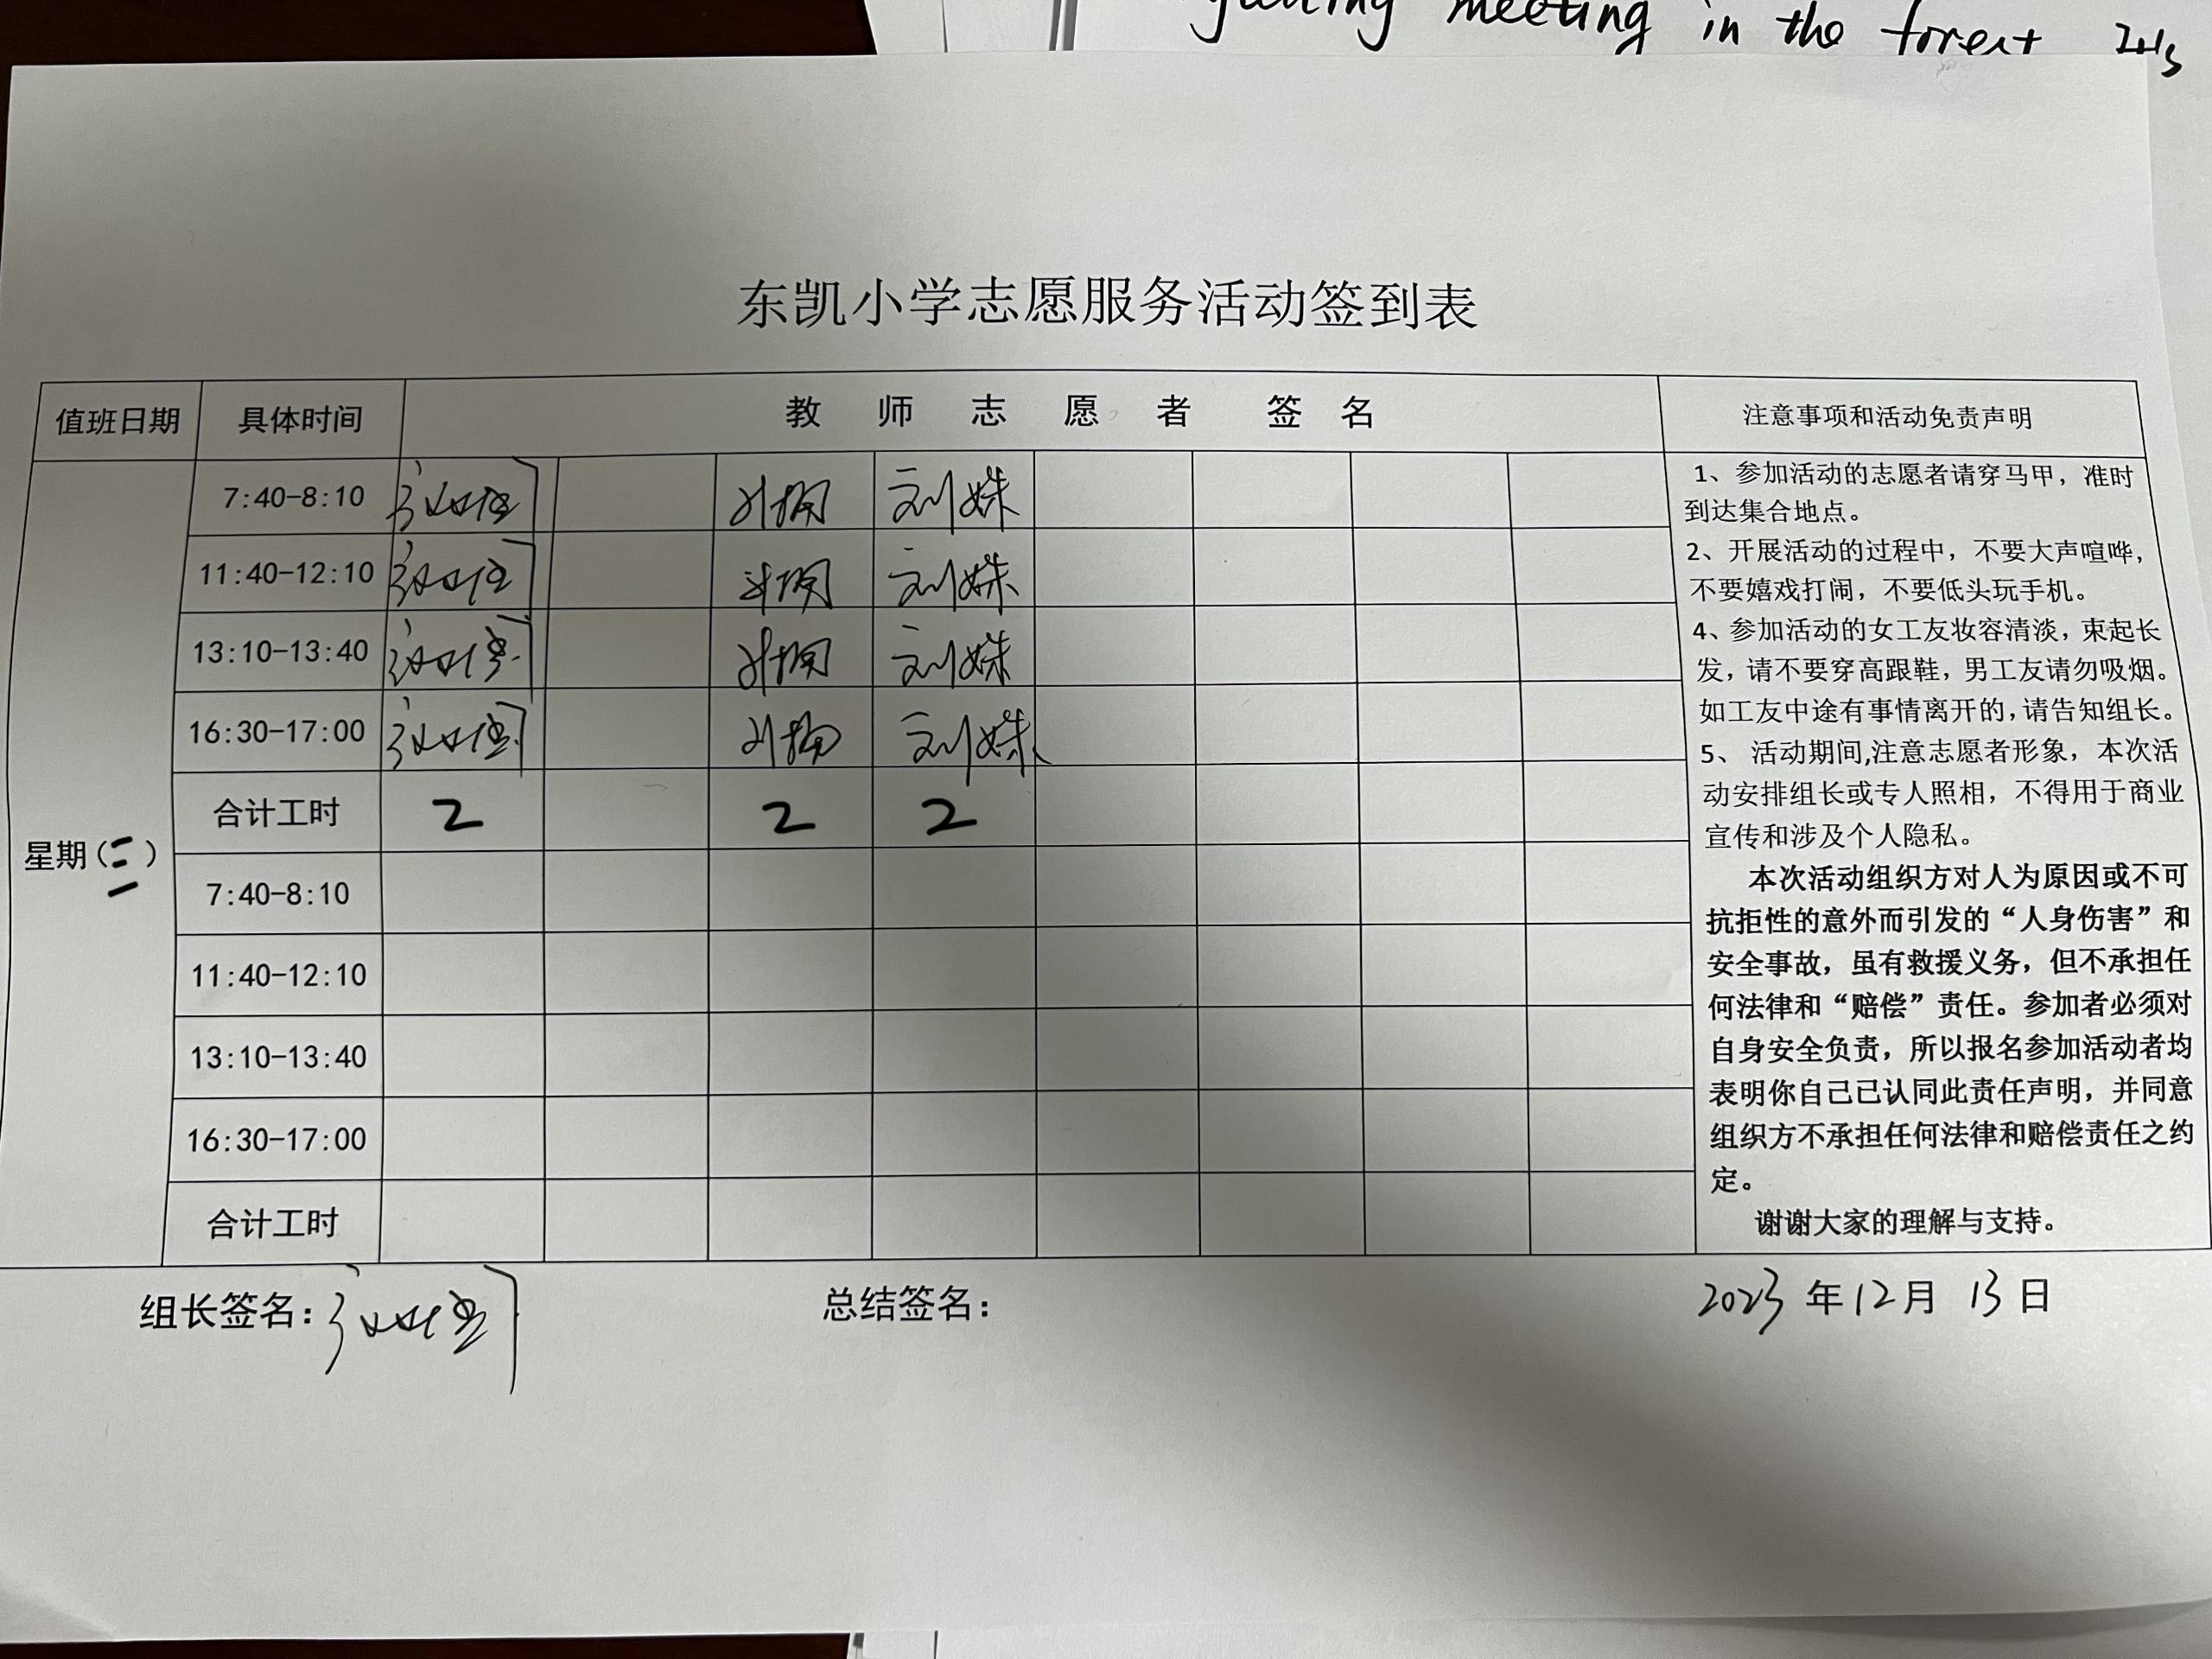 meeting in the forest
东凯小学志愿服务活动签到表
值班日期 具体时间 教师志愿者签名 注意事项和活动免责声明
星期(三)
7:40-8:10 刘姝
11:40-12:10 刘姝
13:10-13:40 刘姝
16:30-17:00 刘姝
合计工时 2 2 2
7:40-8:10
11:40-12:10
13:10-13:40
16:30-17:00
合计工时
1、参加活动的志愿者请穿马甲，准时
到达集合地点。
2、开展活动的过程中，不要大声喧哗，
不要嬉戏打闹，不要低头玩手机。
4、参加活动的女工友妆容清淡，束起长
发，请不要穿高跟鞋，男工友请勿吸烟。
如工友中途有事情离开的，请告知组长。
5、 活动期间,注意志愿者形象，本次活
动安排组长或专人照相，不得用于商业
宣传和涉及个人隐私。
本次活动组织方对人为原因或不可
抗拒性的意外而引发的“人身伤害”和
安全事故，虽有救援义务，但不承担任
何法律和“赔偿”责任。参加者必须对
自身安全负责，所以报名参加活动者均
表明你自己已认同此责任声明，并同意
组织方不承担任何法律和赔偿责任之约
定。
谢谢大家的理解与支持。
组长签名： 总结签名： 2023年12月13日